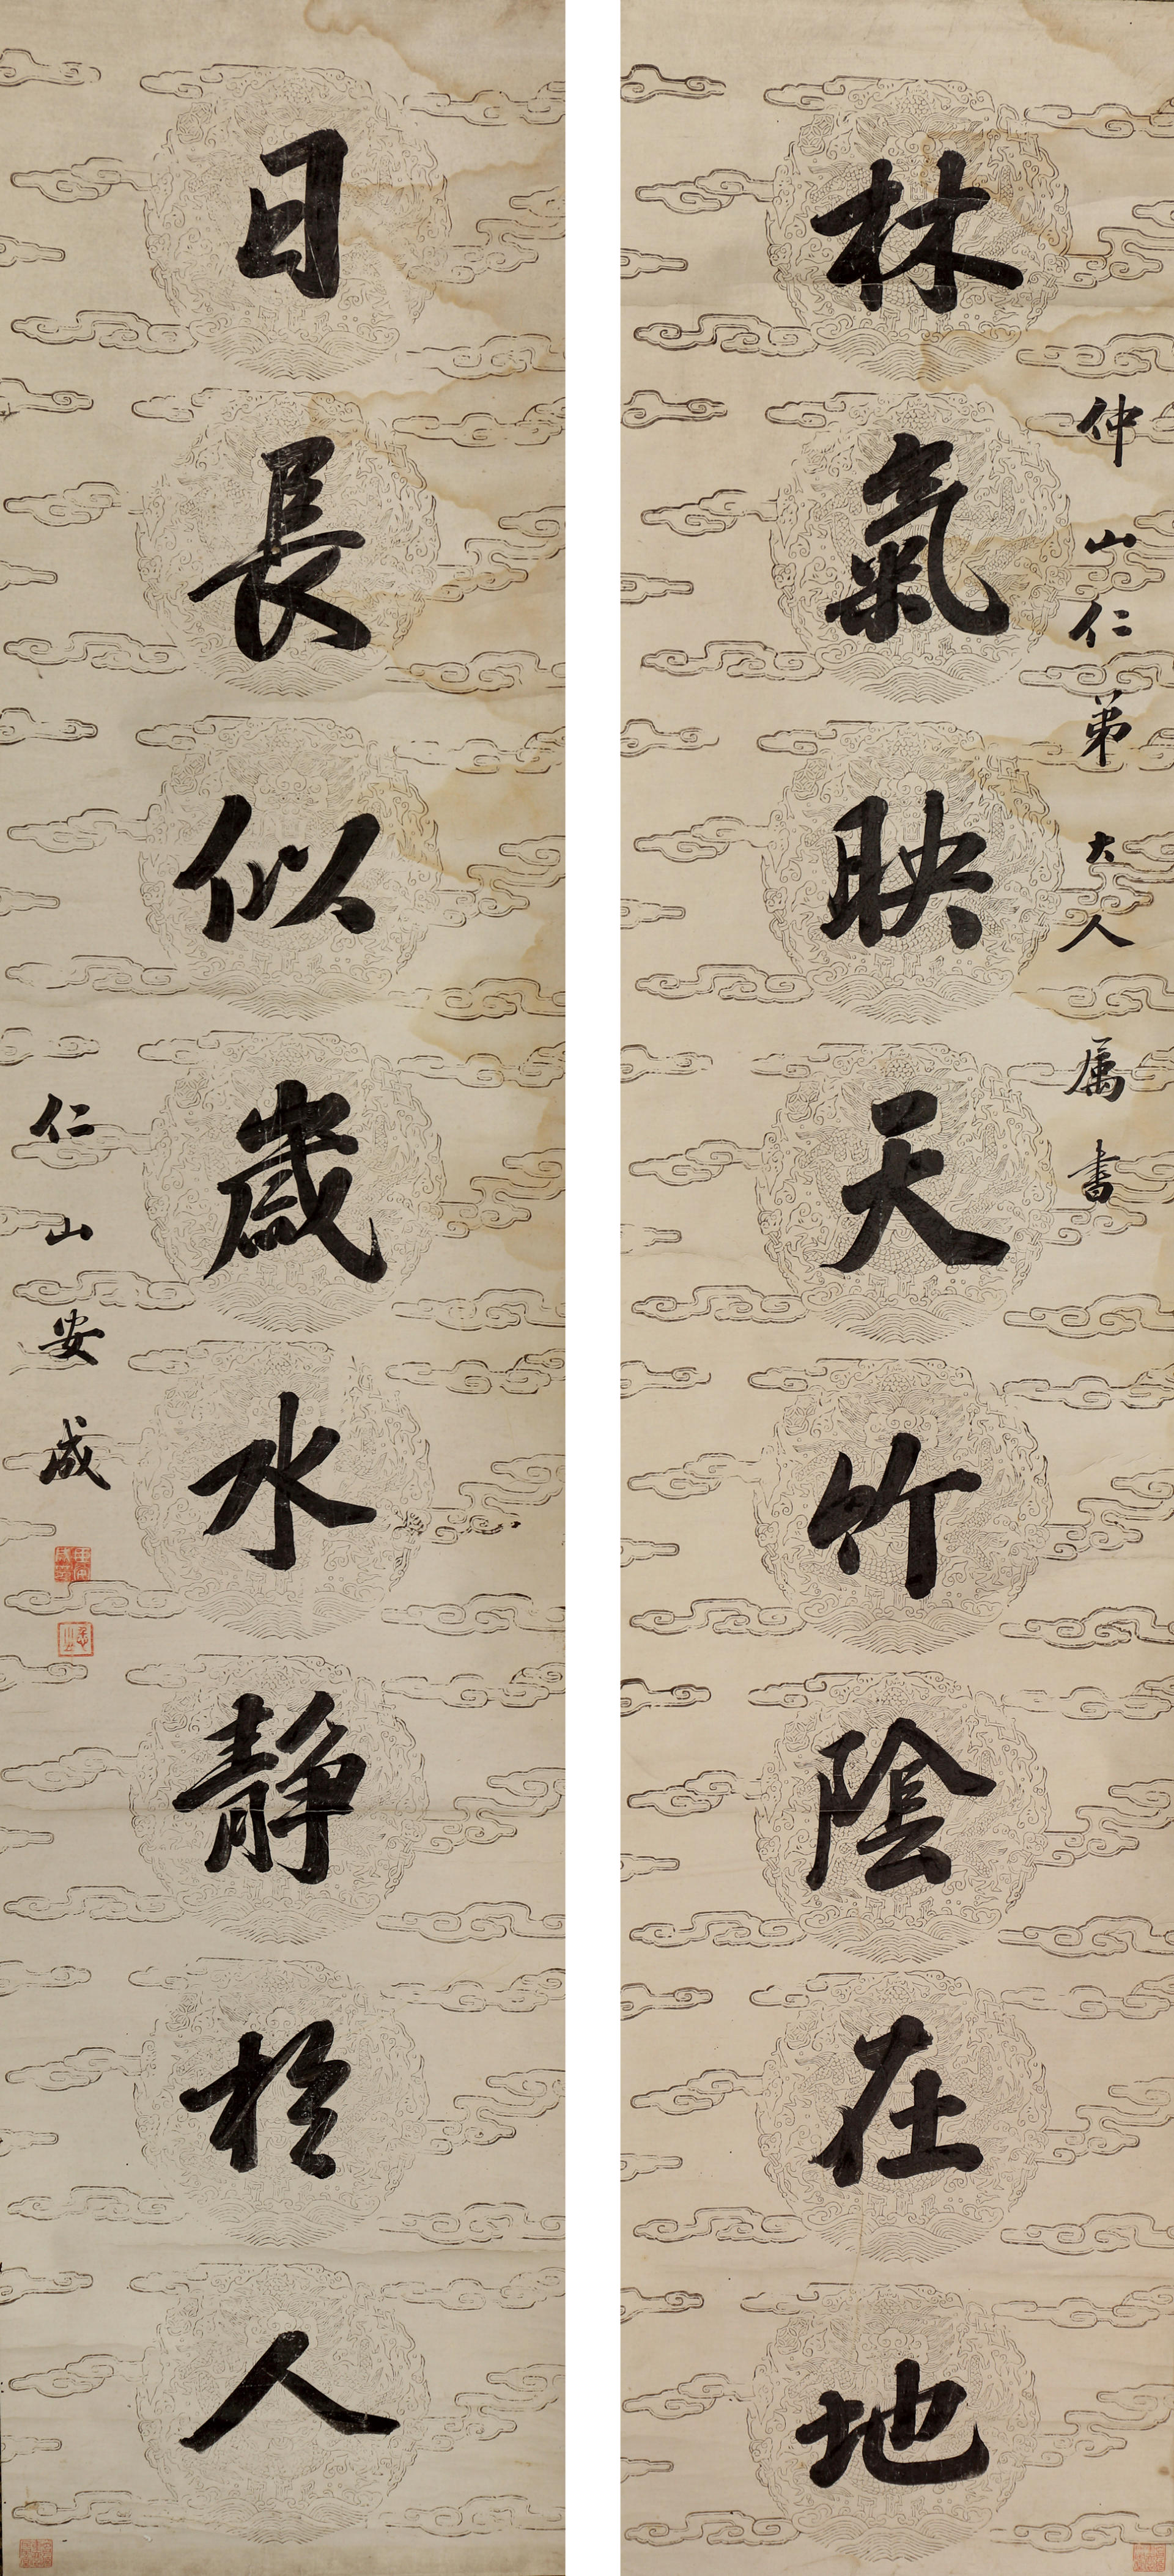 仲山仁弟大人属書
林氣映天竹陰在地
日長似歲水静於人
仁山安成